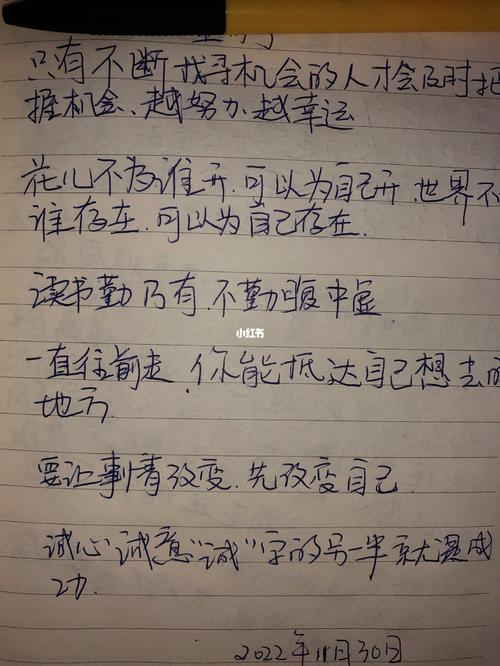 只有不断找寻机会的人才会及时把
握机会、越努力、越幸运
花儿不为谁开.可以为自己开.世界不
谁存在.可以为自己存在.
读书勤乃有.不勤腹中虚
小红书
一直往前走.你能抵达自己想去的
地方.
要让事情改变.先改变自己.
诚心“诚意”“诚”字的另一半就是成
功.
2022年11月30日